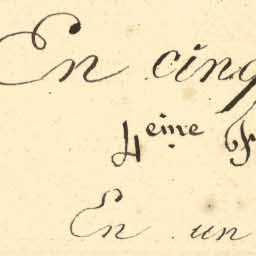 En cinq
4eme
En un